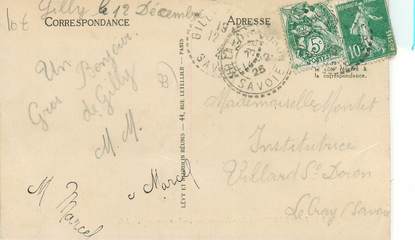 lot
Gilly le 12 Décembre
CORRESPONDANCE
ADRESSE
Un
Gros Bonjour
de Gilly
M. M.
M Marcel
Marcel
LÉVY ET NEURDEIN RÉUNIS — 44, RUE LETELLIER — PARIS
GILLY
SAVOIE
25
SAVOIE
5
10
la correspondance.
Mademoiselle Montet
Institutrice
Villard St Doron
Savoie